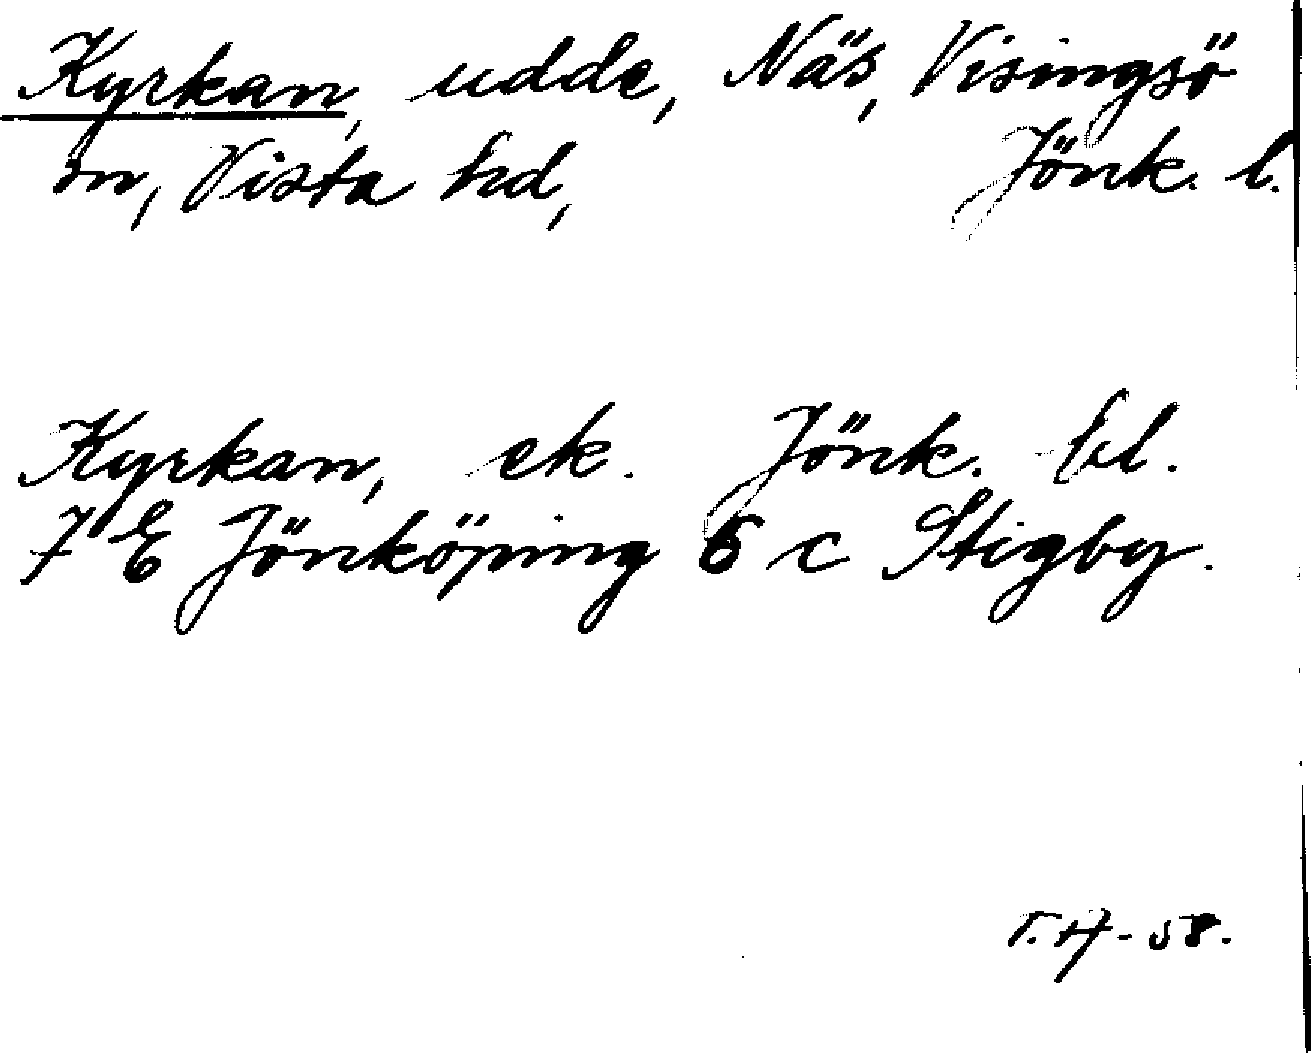 Kyrkan, udde, Näs, Visingsö
sn, Vista hd, Jönk. l.
Kyrkan, ek. Jönk. bl.
7 E Jönköping 6 c Stigby.
T.H-58.